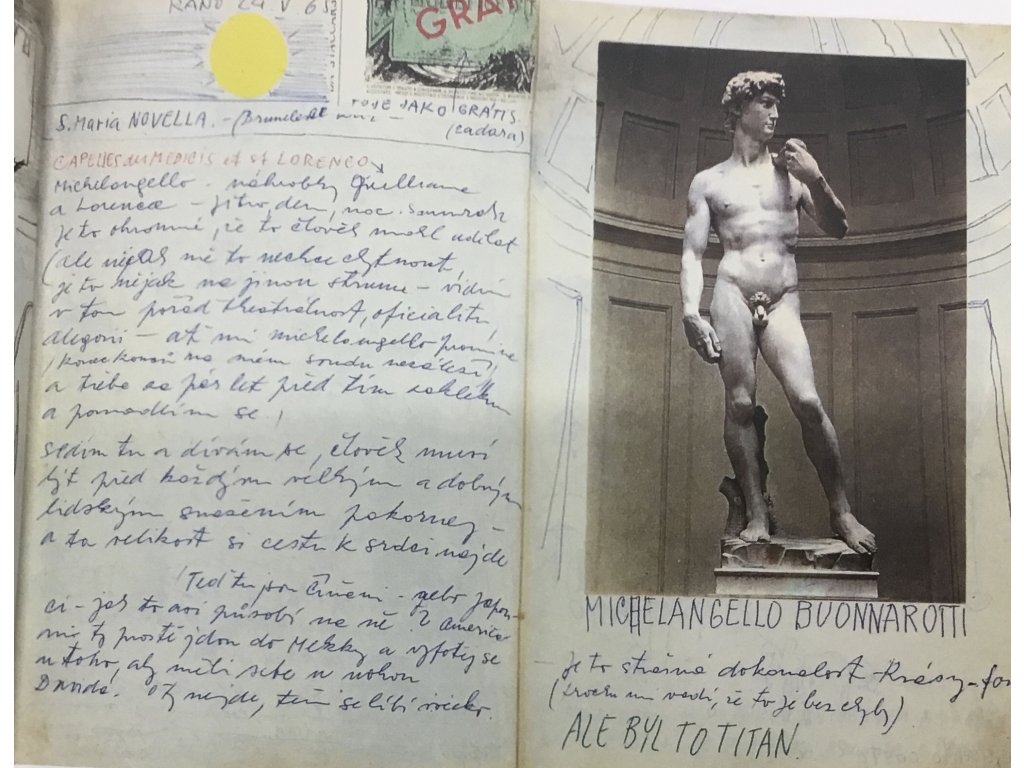 RÁNO 24. V 65
GRAT
S. Maria NOVELLA. - (Brunelesk
TO JE JAKO GRÁTIS.
(čadara)
CAPELLES des MEDICIS et st LORENCO
Michelangello - náhrobky Guilliana
a Lorence - jitro, den, noc. soumrak
je to ohromné, že to člověk mohl udělat
(ale nějak mě to nechce chytnout,
je to nějak na jinou strunu - vidím
v tom pořád theatrálnost, oficialitu,
alegorii - ať mi michelangello promine
(konec konců na mém soudu nezáleží)
a třeba za pár let před tím zakleknu
a pomodlím se.)
sedím tu a dívám se, člověk musí
být před každým velkým a dobrým
lidským snažením pokorný -
a ta velikost si cestu k srdci najde
Teď tu jsou Číňani - nebo japon
ci - jak to asi působí na ně. I američa
ni ty prostě jdou do Mekky a vyfotěj se
u toho, aby měli sebe u nohou
Davida. Ty nejde, těm se líbí všecko.
MICHELANGELLO BUONNAROTTI
- je to strašná dokonalost - krásy - for
(trochu mi vadí, že to je bez chyby)
ALE BYL TO TITAN.